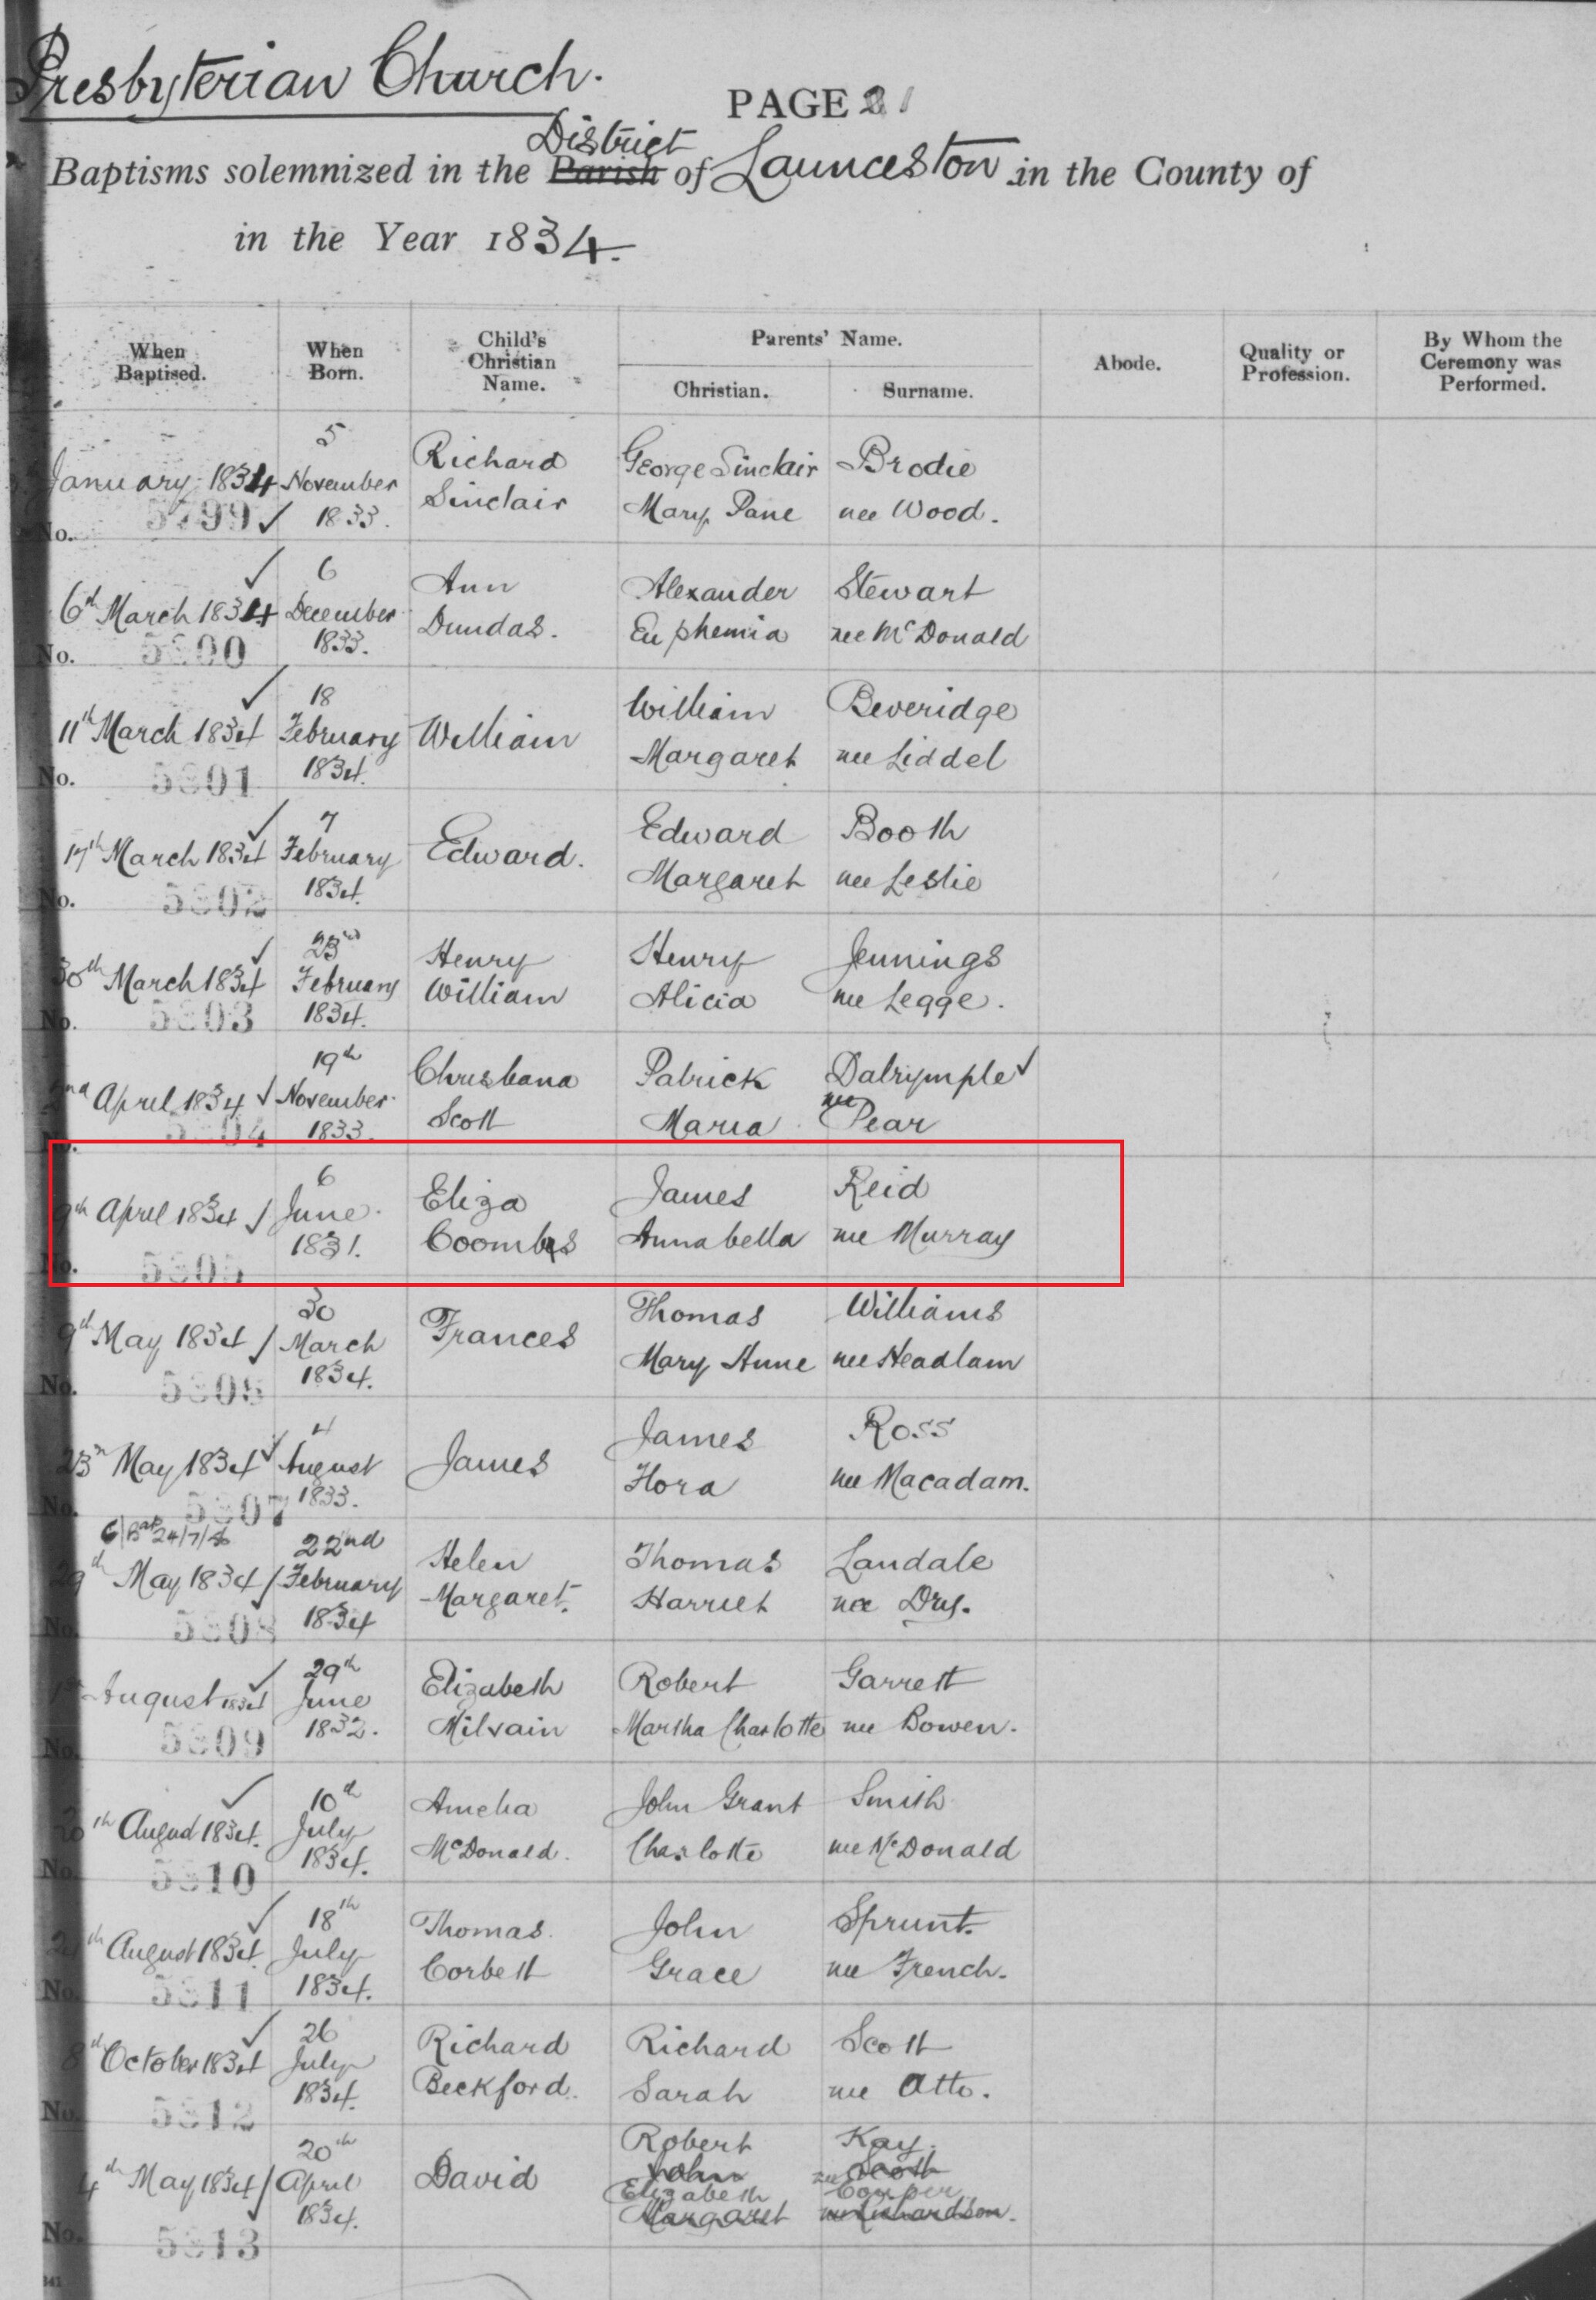 Presbyterian Church.
PAGE 21
Baptisms solemnized in the Parish District of Launceston in the County of
in the Year 1834.
When Baptised. When Born. Child's Christian Name. Parents' Name. Christian. Surname. Abode. Quality or Profession. By Whom the Ceremony was Performed.
5 Richard George Sinclair Brodie
January 1834 November
Sinclair Mary Jane nee Wood.
No. 5799 ✓ 1833.
✓ 6 Ann Alexander Stewart
6th March 1834 December
Dundas. Euphemia nee McDonald
No. 5800 1833.
✓ 18 William Beveridge
11th March 1834 February William
Margaret nee Liddel
No. 5801 1834.
✓ 7 Edward Booth
17th March 1834 February Edward.
Margaret nee Leslie
No. 5802 1834.
✓ 23rd Henry Henry Jennings
30th March 1834 February William Alicia nee Legge.
No. 5803 1834.
19th Christiana Patrick Dalrymple ✓
2nd April 1834 ✓ November
Scott Maria nee Pear
No. 5804 1833.
6 Eliza James Reid
9th April 1834 / June
Coombs Annabella nee Murray
No. 5805 1831.
30 Thomas Williams
9th May 1834 / March Frances
Mary Anne nee Headlam
No. 5806 1834.
4 James Ross
23rd May 1834 ✓ August James
Flora nee Macadam.
No. 5807 1833.
22nd Helen Thomas Landale
29th May 1834 / February
Margaret. Harriet nee Dry.
No. 5808 1834
✓ 29th Elizabeth Robert Garrett
1st August 1834 June
Milvain Martha Charlotte nee Bowen.
No. 5809 1832.
✓ 10th Amelia John Grant Smith
20th August 1834. July
McDonald. Charlotte nee McDonald
No. 5810 1834.
✓ 18th Thomas John Sprunt.
24th August 1834. July
Corbett Grace nee French.
No. 5811 1834.
✓ 26 Richard Richard Scott
8th October 1834 July
Beckford. Sarah nee Otto.
No. 5812 1834.
20th Robert Kay.
4th May 1834 / April David John Scott
Elizabeth nee Couper
1834. Margaret nee Richardson.
No. 5813